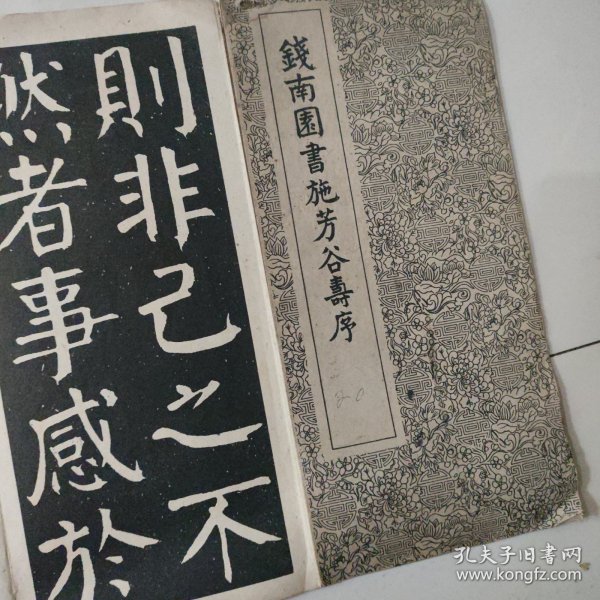 錢南園書施芳谷壽序
則非己之不
然者事感於
孔夫子旧书网
www.kongfz.com